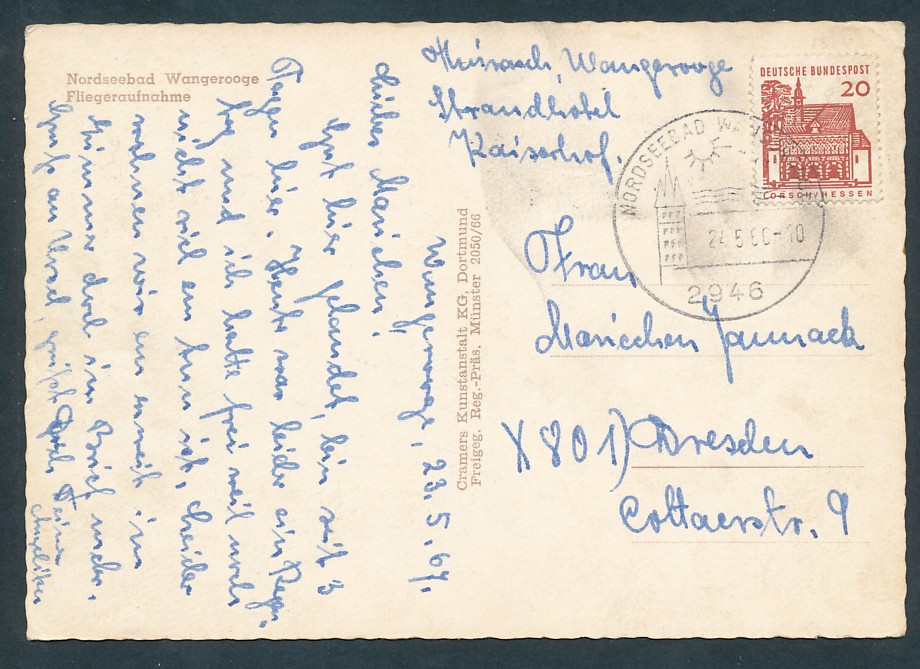 Nordseebad Wangerooge
Fliegeraufnahme
Wangerooge
Strandhotel
Kaiserhof.
DEUTSCHE BUNDESPOST
20
LORSCH/HESSEN
NORDSEEBAD
24.5.66-10
2946
Cramers Kunstanstalt KG, Dortmund
Freigeg. Reg.-Präs. Münster 2050/66
Frau
Mariechen Jannack
X 801) Dresden
Cottaerstr. 9
Wangerooge, 23.5.67.
Liebes Mariechen!
Gut hier gelandet, bin seit 3
Tagen hier. Heute war leider ein Regen-
tag und ich hatte frei weil noch
nicht viel zu tun ist. Leider
wohnen wir zu zweit im
Zimmer doch im Brief mehr.
Gruß an Ursel, grüßt Dich Deine
Angelika